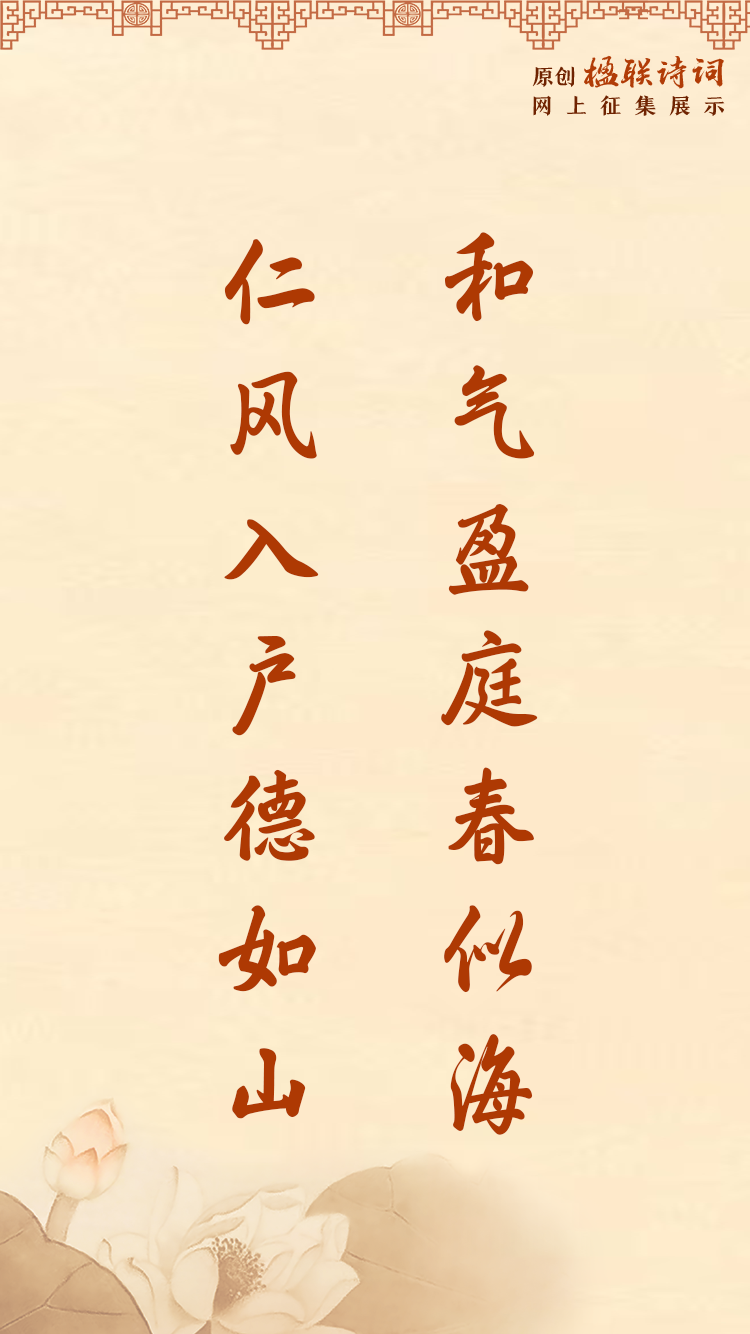 原创 楹联诗词
网上征集展示
和气盈庭春似海
仁风入户德如山